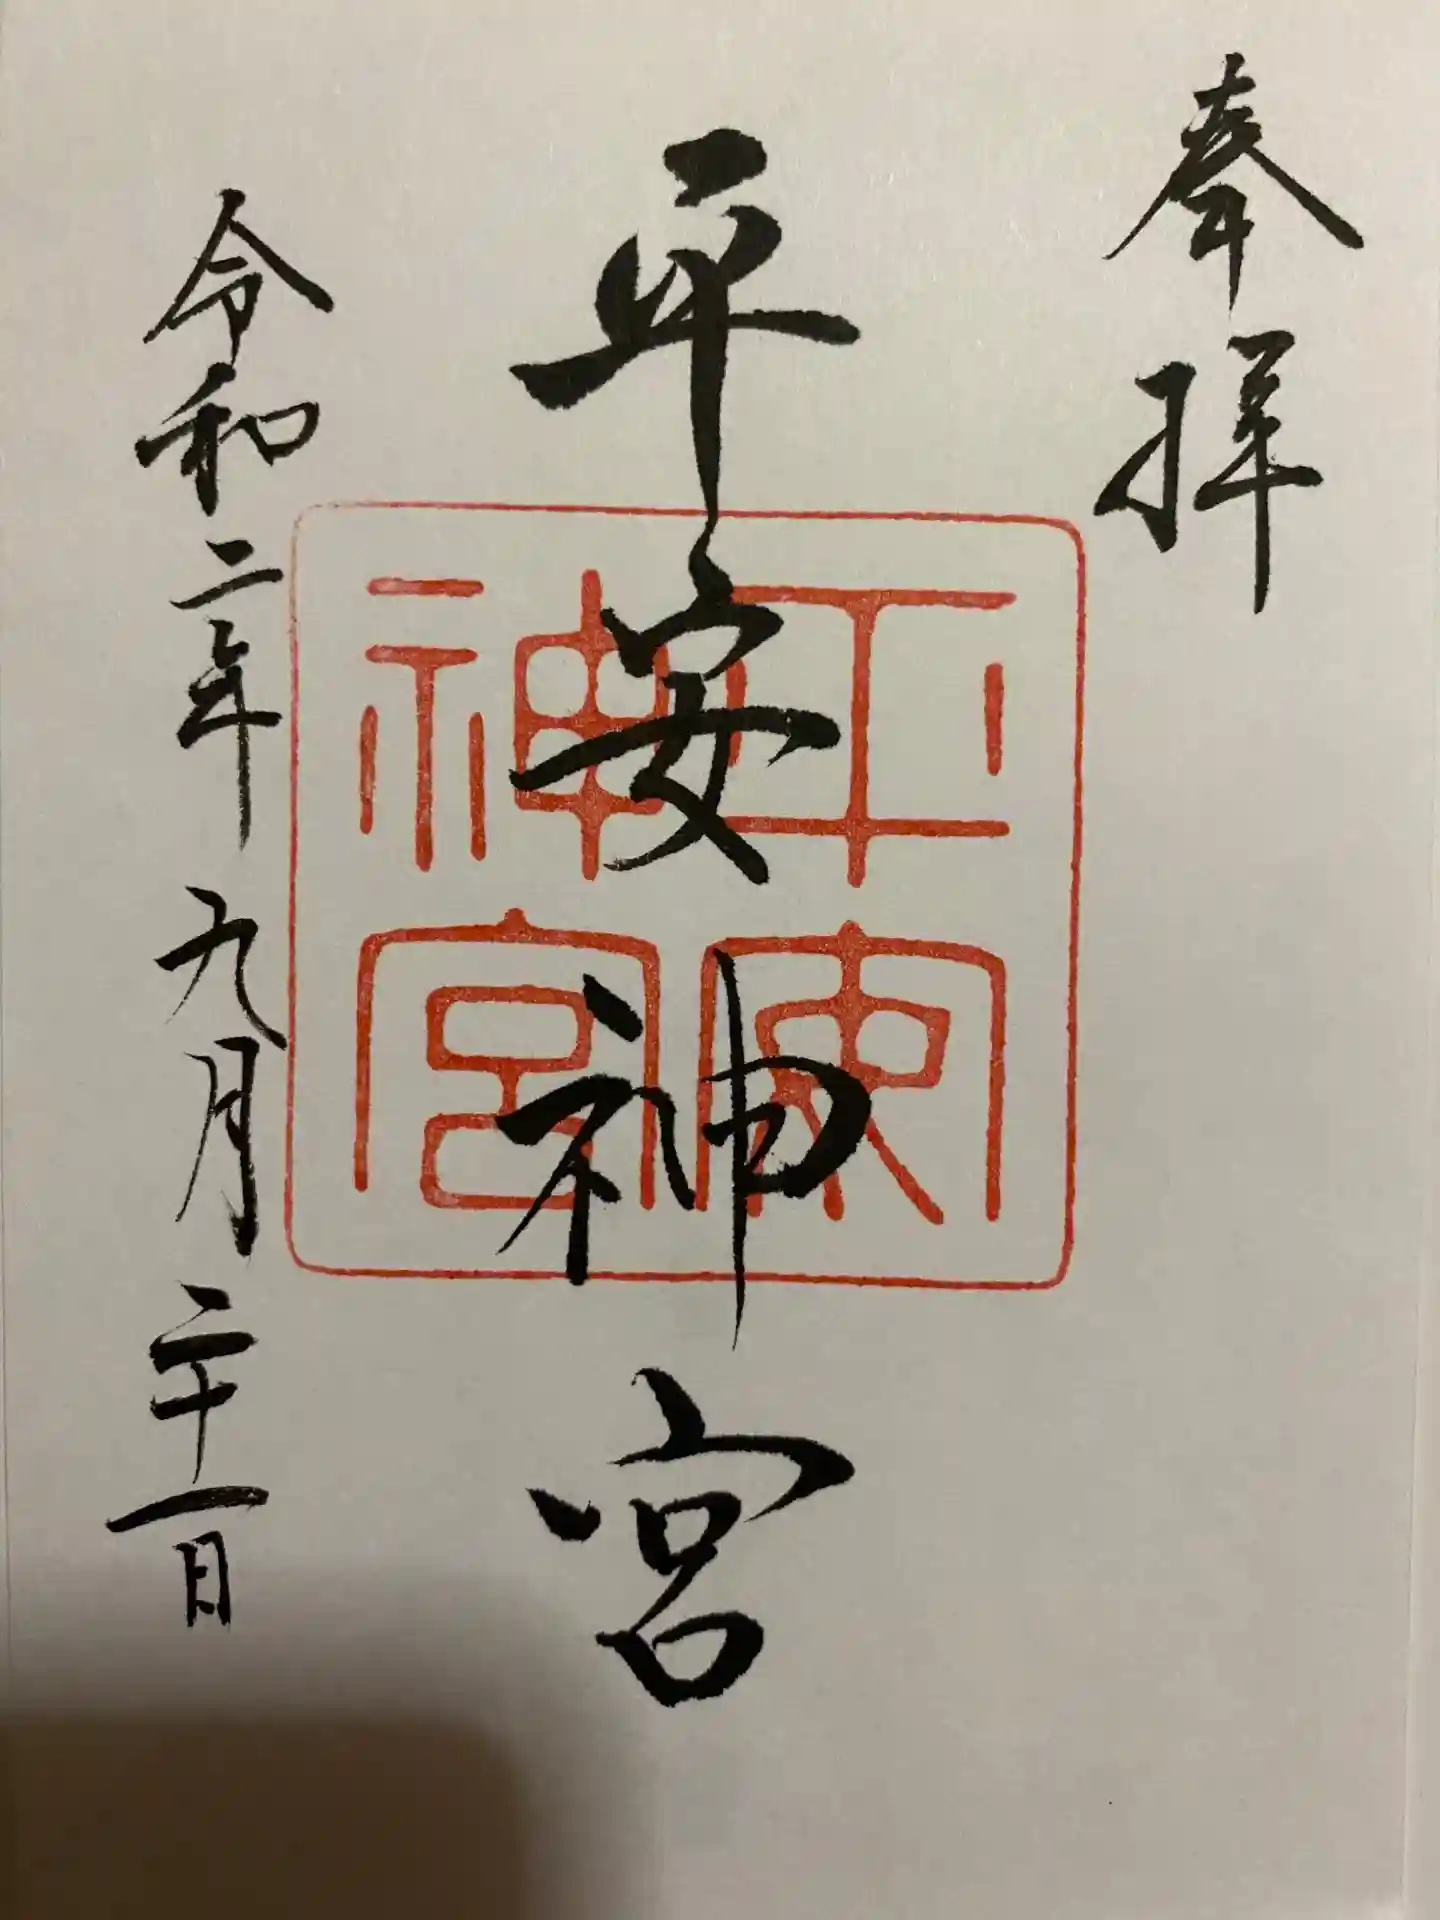 奉拝
平安神宮
平安神宮
令和二年九月二十一日